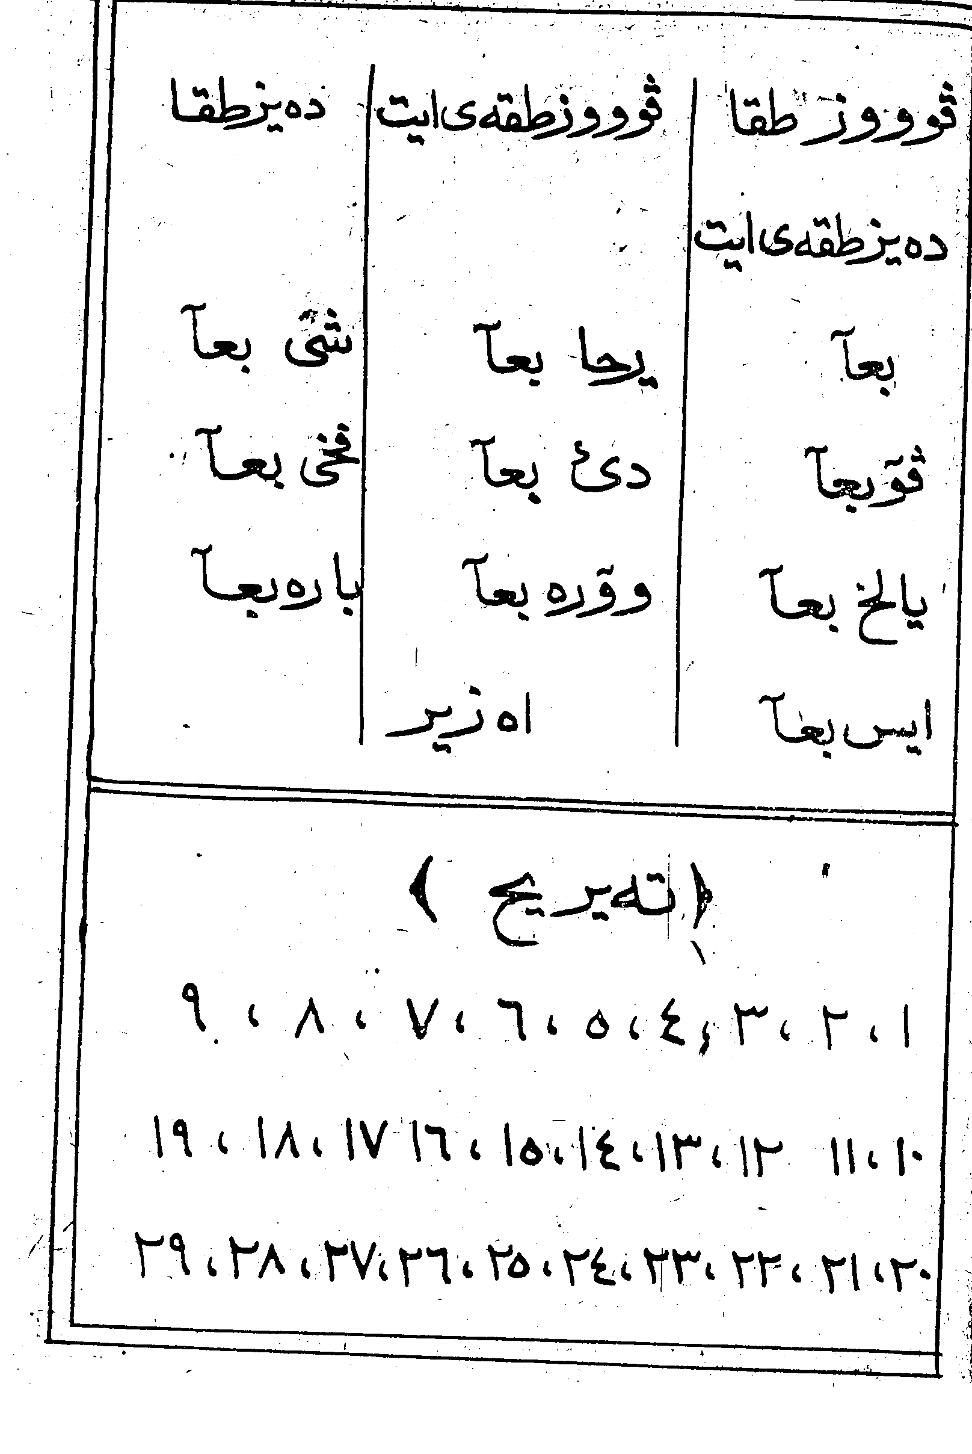 ڤوووز طقا ڤوووزطقه‌ی ایت ده‌یزطقا
ده‌یز طقه‌ی ایت
بعآ یرحا بعآ شی بعآ
ڤوٓبعآ دئ بعآ ڤخی بعآ
یالخ بعآ ووٓره بعآ باره‌بعآ
ایس بعآ اه زیر
﴿ ته‌یریح ﴾
١ ، ٢ ، ٣ ، ٤ ، ٥ ، ٦ ، ٧ ، ٨ ، ٩
١٠ ، ١١ ١٢ ، ١٣ ، ١٤ ، ١٥ ، ١٦ ١٧ ، ١٨ ، ١٩
٢٠ ، ٢١ ، ٢٢ ، ٢٣ ، ٢٤ ، ٢٥ ، ٢٦ ، ٢٧ ، ٢٨ ، ٢٩